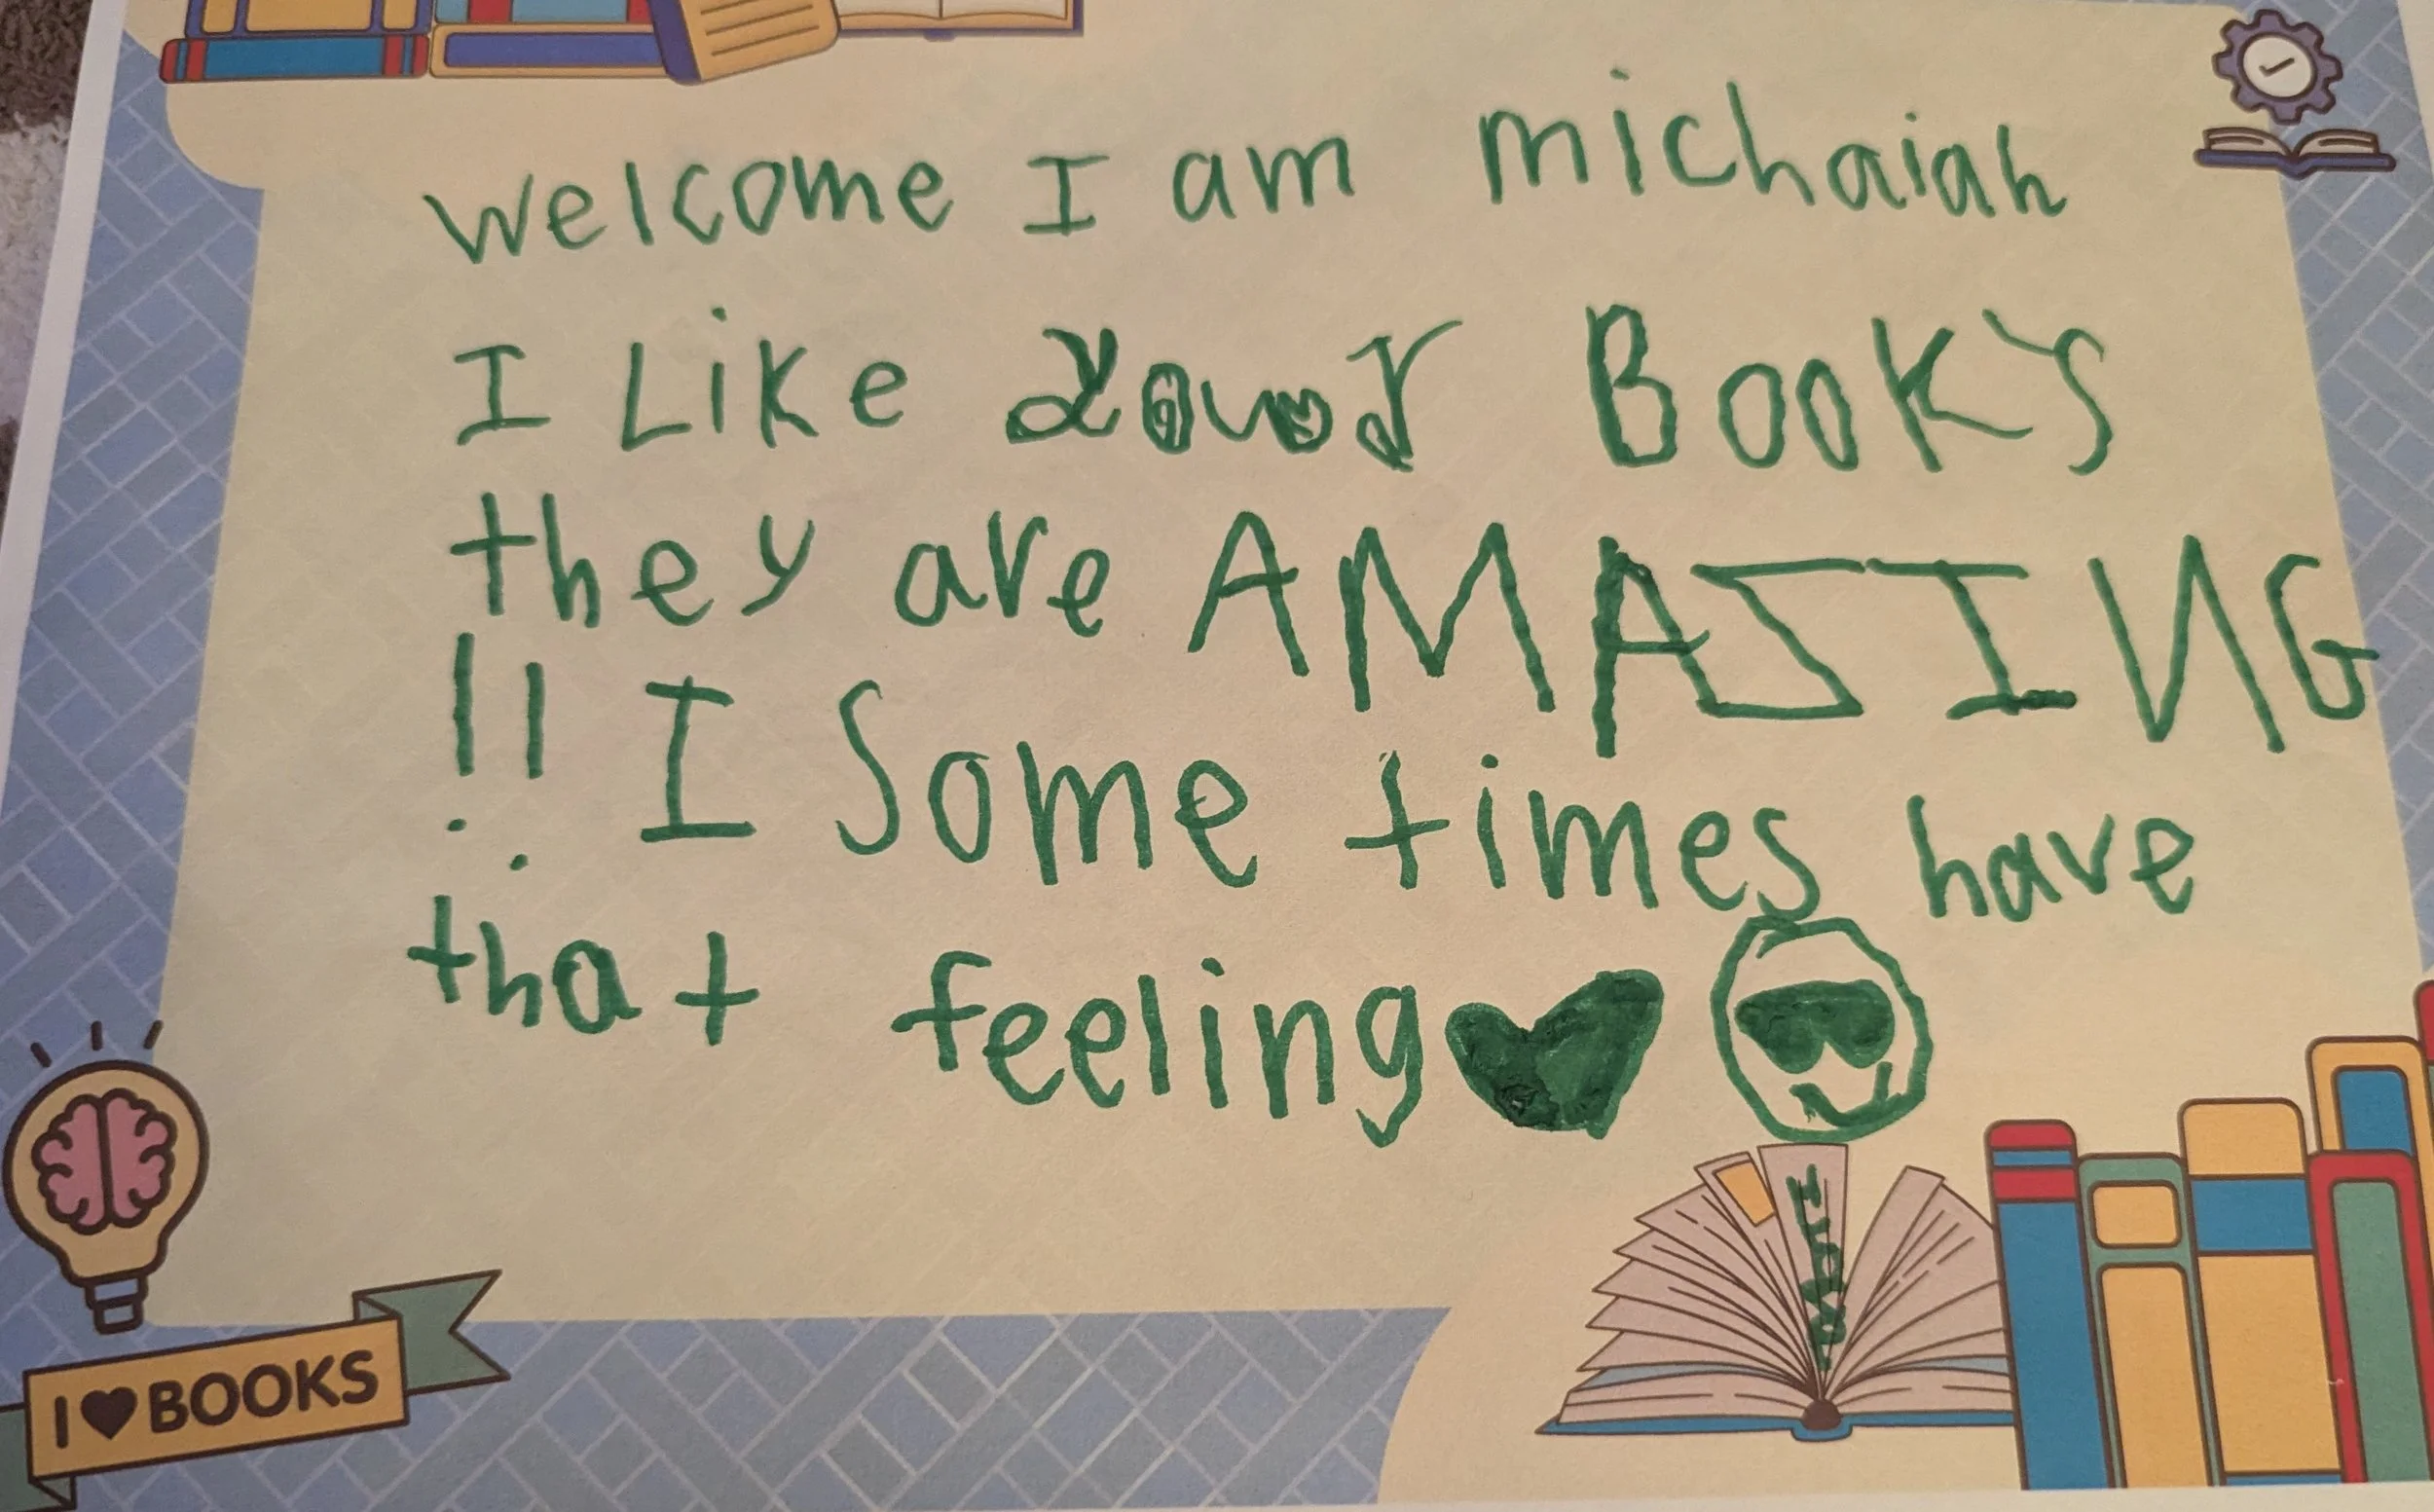 welcome I am michaiah
I Like your Book's
they are AMAZING
!! I Some times have
that feeling
I ♥ BOOKS